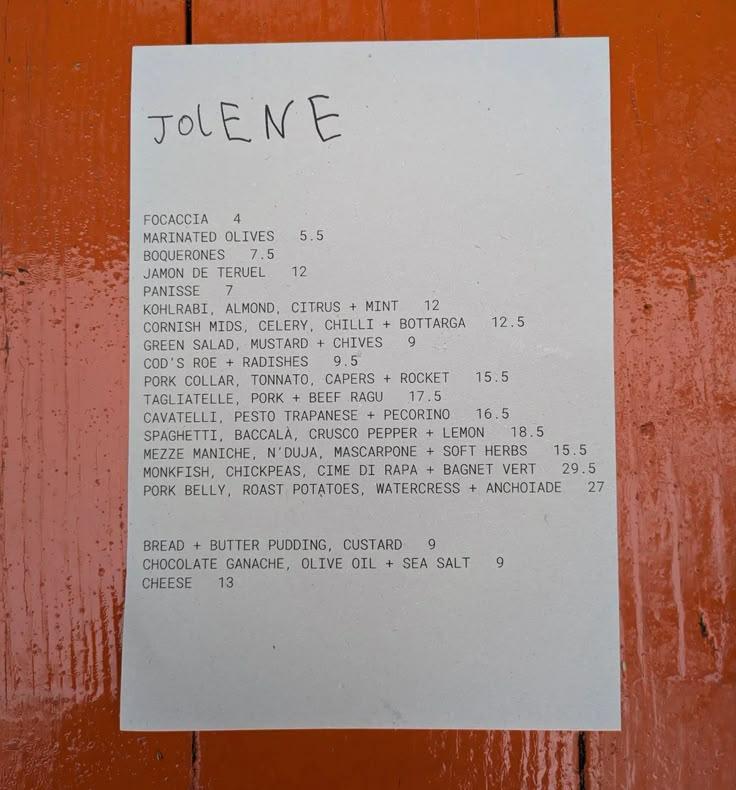 JOLENE
FOCACCIA 4
MARINATED OLIVES 5.5
BOQUERONES 7.5
JAMON DE TERUEL 12
PANISSE 7
KOHLRABI, ALMOND, CITRUS + MINT 12
CORNISH MIDS, CELERY, CHILLI + BOTTARGA 12.5
GREEN SALAD, MUSTARD + CHIVES 9
COD'S ROE + RADISHES 9.5
PORK COLLAR, TONNATO, CAPERS + ROCKET 15.5
TAGLIATELLE, PORK + BEEF RAGU 17.5
CAVATELLI, PESTO TRAPANESE + PECORINO 16.5
SPAGHETTI, BACCALÀ, CRUSCO PEPPER + LEMON 18.5
MEZZE MANICHE, N'DUJA, MASCARPONE + SOFT HERBS 15.5
MONKFISH, CHICKPEAS, CIME DI RAPA + BAGNET VERT 29.5
PORK BELLY, ROAST POTATOES, WATERCRESS + ANCHOIADE 27
BREAD + BUTTER PUDDING, CUSTARD 9
CHOCOLATE GANACHE, OLIVE OIL + SEA SALT 9
CHEESE 13